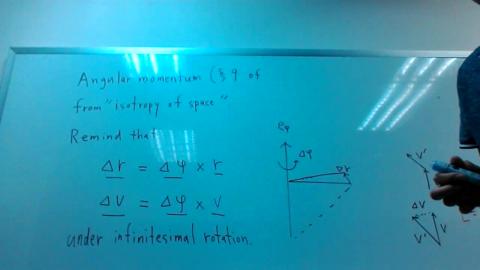 Angular momentum (§9 of
from "isotropy of space"
Remind that
Δr = Δφ × r
Δv = Δφ × v
under infinitesimal rotation.
Δφ
Δr
v'
Δv
v' v